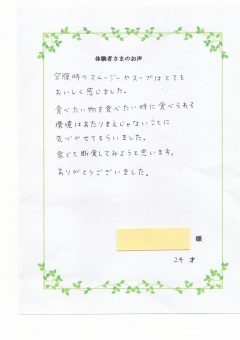 体験者さまのお声
空腹時のスムージーやスープはとても
おいしく感じました。
食べたい物を食べたい時に食べられる
環境はあたりまえじゃないことに
気づかせてもらいました。
家でも断食してみようと思います。
ありがとうございました。
様
24 才